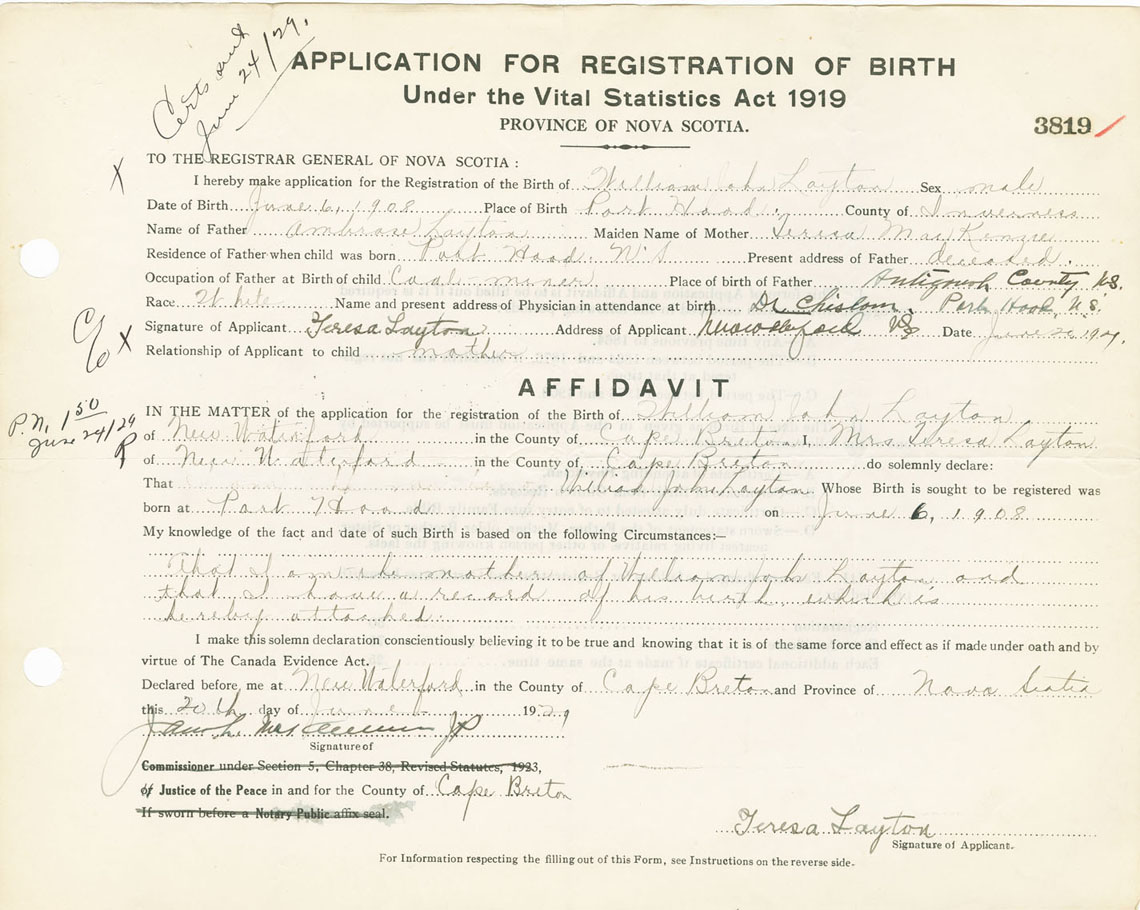 Certs sent
June 24/29.
APPLICATION FOR REGISTRATION OF BIRTH
Under the Vital Statistics Act 1919
PROVINCE OF NOVA SCOTIA.
3819
X
TO THE REGISTRAR GENERAL OF NOVA SCOTIA :
I hereby make application for the Registration of the Birth of William John Layton Sex male
Date of Birth June 6, 1908 Place of Birth Port Hood. County of Inverness
Name of Father Ambrose Layton Maiden Name of Mother Teresa MacKenzie
Residence of Father when child was born Port Hood. N.S Present address of Father deceased.
Occupation of Father at Birth of child Coal miner Place of birth of Father Antigonish County N.S.
Race White Name and present address of Physician in attendance at birth Dr Chislom, Port Hood, N.S.
X
Signature of Applicant Teresa Layton Address of Applicant NS Date June 20 192
Relationship of Applicant to child mother
AFFIDAVIT
P.N. 1 50
June 24/29
IN THE MATTER of the application for the registration of the Birth of William John Layton
of New Waterford in the County of Cape Breton I, Mrs Teresa Layton
of New Waterford in the County of Cape Breton do solemnly declare:
That William John Layton Whose Birth is sought to be registered was
born at Port Hood on June 6, 1908
My knowledge of the fact and date of such Birth is based on the following Circumstances:—
That I am the mother of William John Layton and
that I have a record of his birth which is
hereby attached.
I make this solemn declaration conscientiously believing it to be true and knowing that it is of the same force and effect as if made under oath and by
virtue of The Canada Evidence Act.
Declared before me at New Waterford in the County of Cape Breton and Province of Nova Scotia
this 20th day of June 1929
JP
Signature of
Commissioner under Section 5, Chapter 38, Revised Statutes, 1923,
of Justice of the Peace in and for the County of Cape Breton
If sworn before a Notary Public affix seal.
Teresa Layton
Signature of Applicant.
For Information respecting the filling out of this Form, see Instructions on the reverse side.